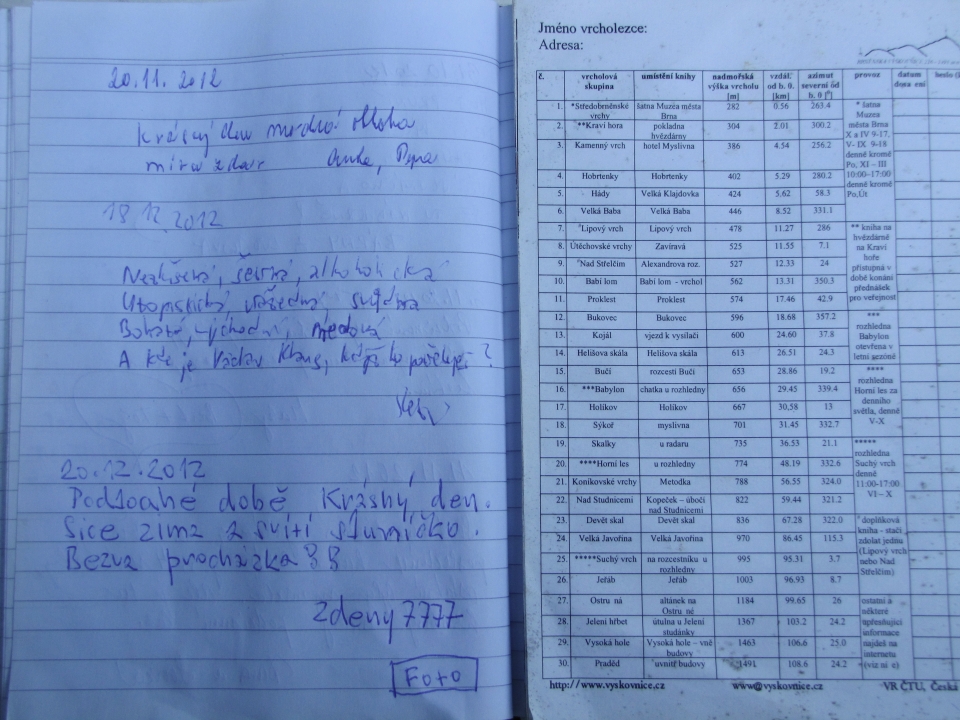 20.11.2012
Krásný den modrá obloha
míru zdar
18.12.2012
A kde je Václav Klaus, když ho potřebuješ?
20.12.2012
době Krásný den.
Sice zima a svítí sluníčko.
Bezva procházka
Zdeny7777
FOTO
Jméno vrcholezce:
Adresa:
č. vrcholová skupina umístění knihy nadmořská výška vrcholu [m] vzdál. od b. 0. [km] azimut severní od b. 0 [°] provoz datum
1. *Středobrněnské vrchy šatna Muzea města Brna 282 0.56 263.4
2. **Kraví hora pokladna hvězdárny 304 2.01 300.2
3. Kamenný vrch hotel Myslivna 386 4.54 256.2
4. Hobrtenky Hobrtenky 402 5.29 280.2
5. Hády Velká Klajdovka 424 5.62 58.3
6. Velká Baba Velká Baba 446 8.52 331.1
7. °Lipový vrch Lipový vrch 478 11.27 286
8. Útěchovské vrchy Zavíravá 525 11.55 7.1
9. °Nad Střelčím Alexandrova roz. 527 12.33 24
10. Babí lom Babí lom - vrchol 562 13.31 350.3
11. Proklest Proklest 574 17.46 42.9
12. Bukovec Bukovec 596 18.68 357.2
13. Kojál vjezd k vysílači 600 24.60 37.8
14. Helišova skála Helišova skála 613 26.51 24.3
15. Bučí rozcestí Bučí 653 28.86 19.2
16. ***Babylon chatka u rozhledny 656 29.45 339.4
17. Holíkov Holíkov 667 30,58 13
18. Sýkoř myslivna 701 31.45 332.7
19. Skalky u radaru 735 36.53 21.1
20. ****Horní les u rozhledny 774 48.19 332.6
21. Koníkovské vrchy Metodka 788 56.55 324.0
22. Nad Studnicemi Kopeček – úbočí nad Studnicemi 822 59.44 321.2
23. Devět skal Devět skal 836 67.28 322.0
24. Velká Javořina Velká Javořina 970 86.45 115.3
25. *****Suchý vrch na rozcestníku u rozhledny 995 95.31 3.7
26. Jeřáb Jeřáb 1003 96.93 8.7
27. Ostru ná altánek na Ostru né 1184 99.65 26
28. Jelení hřbet útulna u Jelení studánky 1367 103.2 24.2
29. Vysoká hole Vysoká hole – vně budovy 1463 106.6 25.0
30. Praděd uvnitř budovy 1491 108.6 24.2
* šatna
Muzea
města Brna
X a IV 9-17,
V- IX 9-18
denně kromě
Po, XI – III
10:00–17:00
denně kromě
Po,Út
** kniha na
hvězdárně
na Kraví
hoře
přístupná v
době konání
přednášek
pro veřejnost
***
rozhledna
Babylon
otevřena v
letní sezóně
****
rozhledna
Horní les za
denního
světla, denně
V-X
*****
rozhledna
Suchý vrch
denně
11:00-17:00
VI – X
°doplňková
kniha - stačí
zdolat jednu
(Lipový vrch
nebo Nad
Střelčím)
ostatní a
některé
upřesňující
informace
najdeš na
internetu
(viz ní e)
http://www.vyskovnice.cz www@vyskovnice.cz VR ČTU, Česká